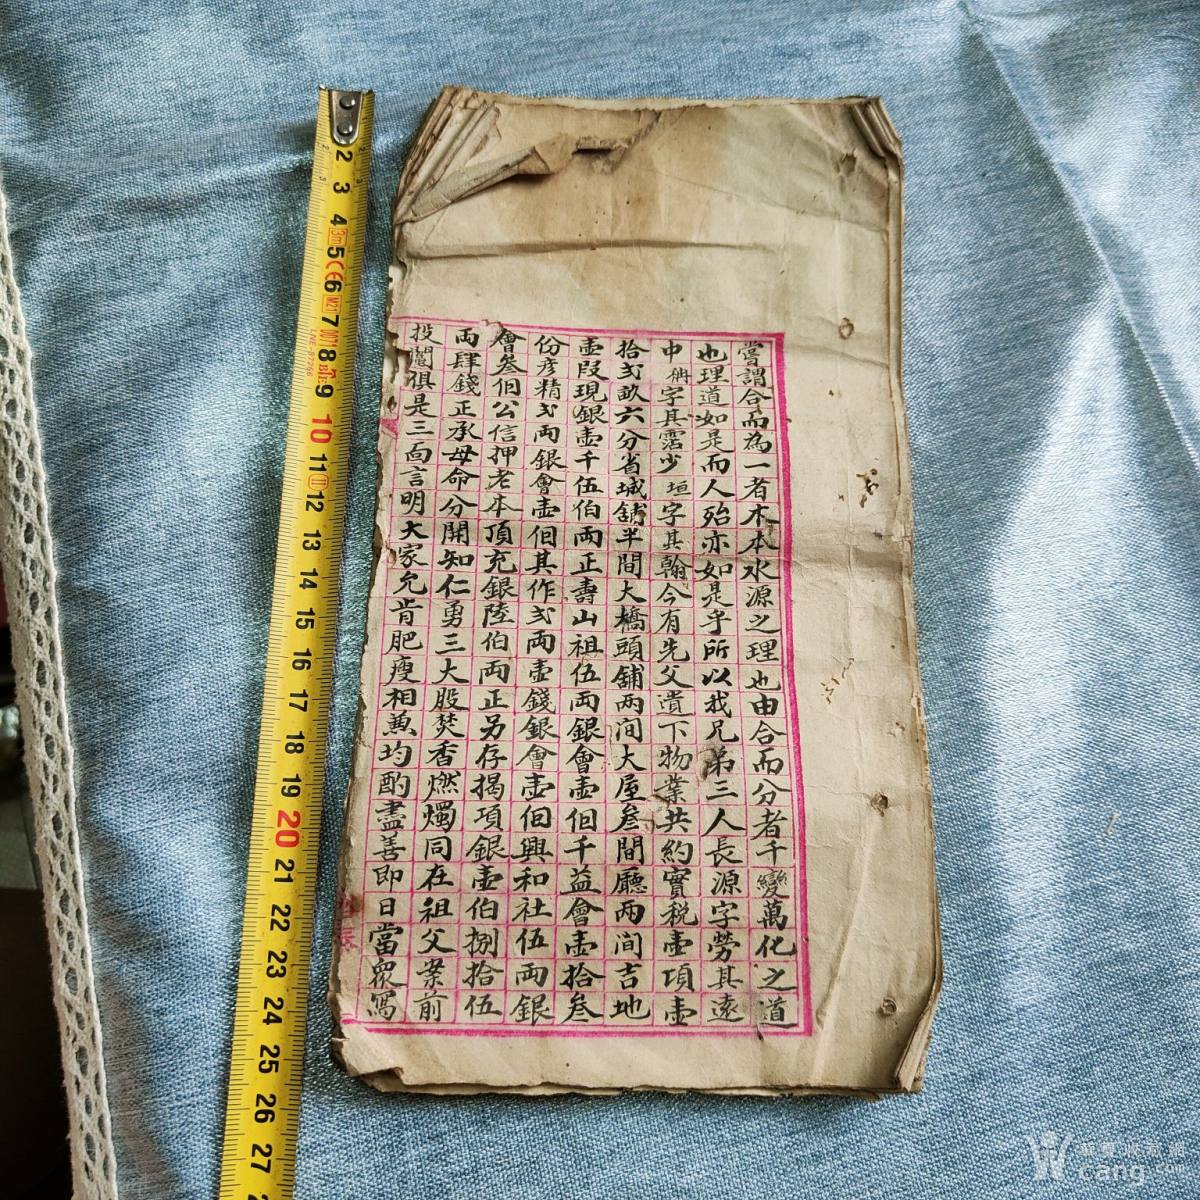 嘗謂合而為一者木本水源之理也由合而分者千變萬化之道
也理道如是而人殆亦如是乎所以我兄弟三人長源字勞其遠
中炳字其霑少垣字其翰今有先父遺下物業共約實稅壷項壷
拾弍畝六分省城舖半間大橋頭舖两间大屋叁間廳两间吉地
壷段現銀壷千伍伯両正壽山祖伍両銀會壷佪千益會壷拾叁
份彦精弍両銀會壷佪其作弍両壷錢銀會壷佪興和社伍両銀
會叁佪公信押老本頂充銀陸伯両正另存揭項銀壷伯捌拾伍
両肆錢正承母命分開知仁勇三大股焚香燃燭同在祖父業前
投鬮俱是三面言明大家允肯肥瘦相兼均酌盡善即日當眾寫
2 3 4 5 6 7 8 9 10 11 12 13 14 15 16 17 18 19 20 21 22 23 24 25 26 27
3m CE M21
cang.com